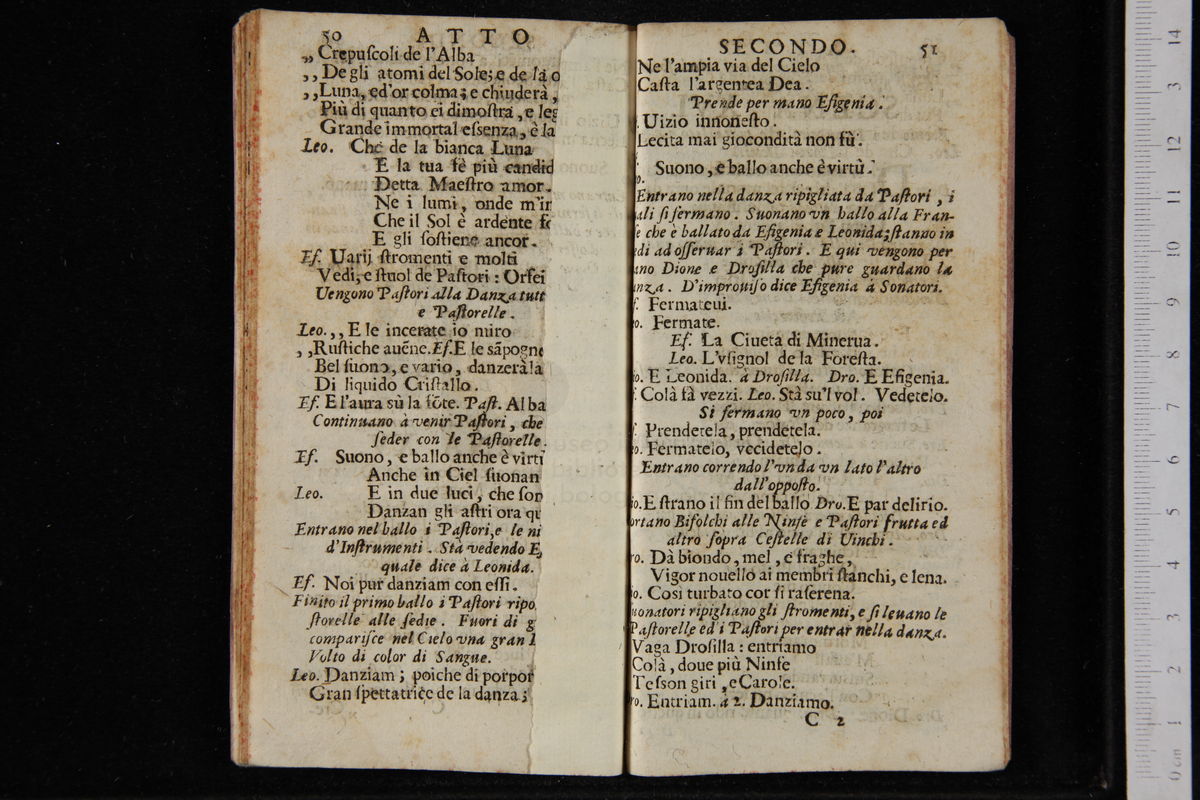 50 ATTO
„ Crepuſcoli de l'Alba
,, De gli atomi del Sole; e de la o
,, Luna, ed'or colma; e chiuderà,
Più di quanto ci dimoſtra, e leg
Grande immortal eſſenza, è la
Leo. Che de la bianca Luna
E la tua fè più candid
Detta Maeſtro amor.
Ne i lumi, onde m'ir
Che il Sol è ardente fe
E gli ſoſtiene ancor.
Ef. Uarij ſtromenti e molti
Vedi, e ſtuol de Paſtori: Orfei
Uengono Paſtori alla Danza tutt
e Paſtorelle.
Leo. ,, E le incerate io miro
,, Ruſtiche avēne. Ef. E le sāpogne
Bel ſuono, e vario, danzerà la
Di liquido Criſtallo.
Ef. E l'aura sù la fōte. Paſt. Al ba
Continuano à venir Paſtori, che
ſeder con le Paſtorelle.
Ef. Suono, e ballo anche è virtù
Anche in Ciel ſuonan
Leo. E in due luci, che ſon
Danzan gli aſtri ora qu
Entrano nel ballo i Paſtori, e le ni
d'Inſtrumenti. Stà vedendo E
quale dice à Leonida.
Ef. Noi pur danziam con eſſi.
Finito il primo ballo i Paſtori ripo
ſtorelle alle ſedie. Fuori di g
compariſce nel Cielo vna gran l
Volto di color di Sangue.
Leo. Danziam; poiche di porpor
Gran ſpettatrice de la danza;
SECONDO. 51
Ne l'ampia via del Cielo
Caſta l'argentea Dea.
Prende per mano Efigenia.
Uizio innoneſto.
Lecita mai giocondità non fù.
Suono, e ballo anche è virtù.
o.
Entrano nella danza ripigliata da Paſtori, i
ali ſi fermano. Suonano vn ballo alla Fran-
ſe che è ballato da Efigenia e Leonida; ſtanno in
edi ad oſſeruar i Paſtori. E qui vengono per
ano Dione e Drofilla che pure guardano la
anza. D'improuiſo dice Efigenia à Sonatori.
f. Fermateui.
eo. Fermate.
Ef. La Ciueta di Minerua.
Leo. L'vſignol de la Foreſta.
io. E Leonida. à Drofilla. Dro. E Efigenia.
f. Colà fà vezzi. Leo. Stà su'l vol. Vedetelo.
Si fermano vn poco, poi
f. Prendetela, prendetela.
eo. Fermatelo, vccidetelo.
Entrano correndo l'vn da vn lato l'altro
dall'oppoſto.
io. E ſtrano il fin del ballo Dro. E par delirio.
ortano Bifolchi alle Ninfe e Paſtori frutta ed
altro ſopra Ceſtelle di Uinchi.
ro. Dà biondo, mel, e fraghe,
Vigor nouello ai membri ſtanchi, e lena.
io. Cosi turbato cor ſi raſerena.
uonatori ripigliano gli ſtromenti, e ſi leuano le
Paſtorelle ed i Paſtori per entrar nella danza.
Vaga Drofilla: entriamo
Colà, doue più Ninfe
Teſſon giri, e Carole.
ro. Entriam. à 2. Danziamo.
C 2